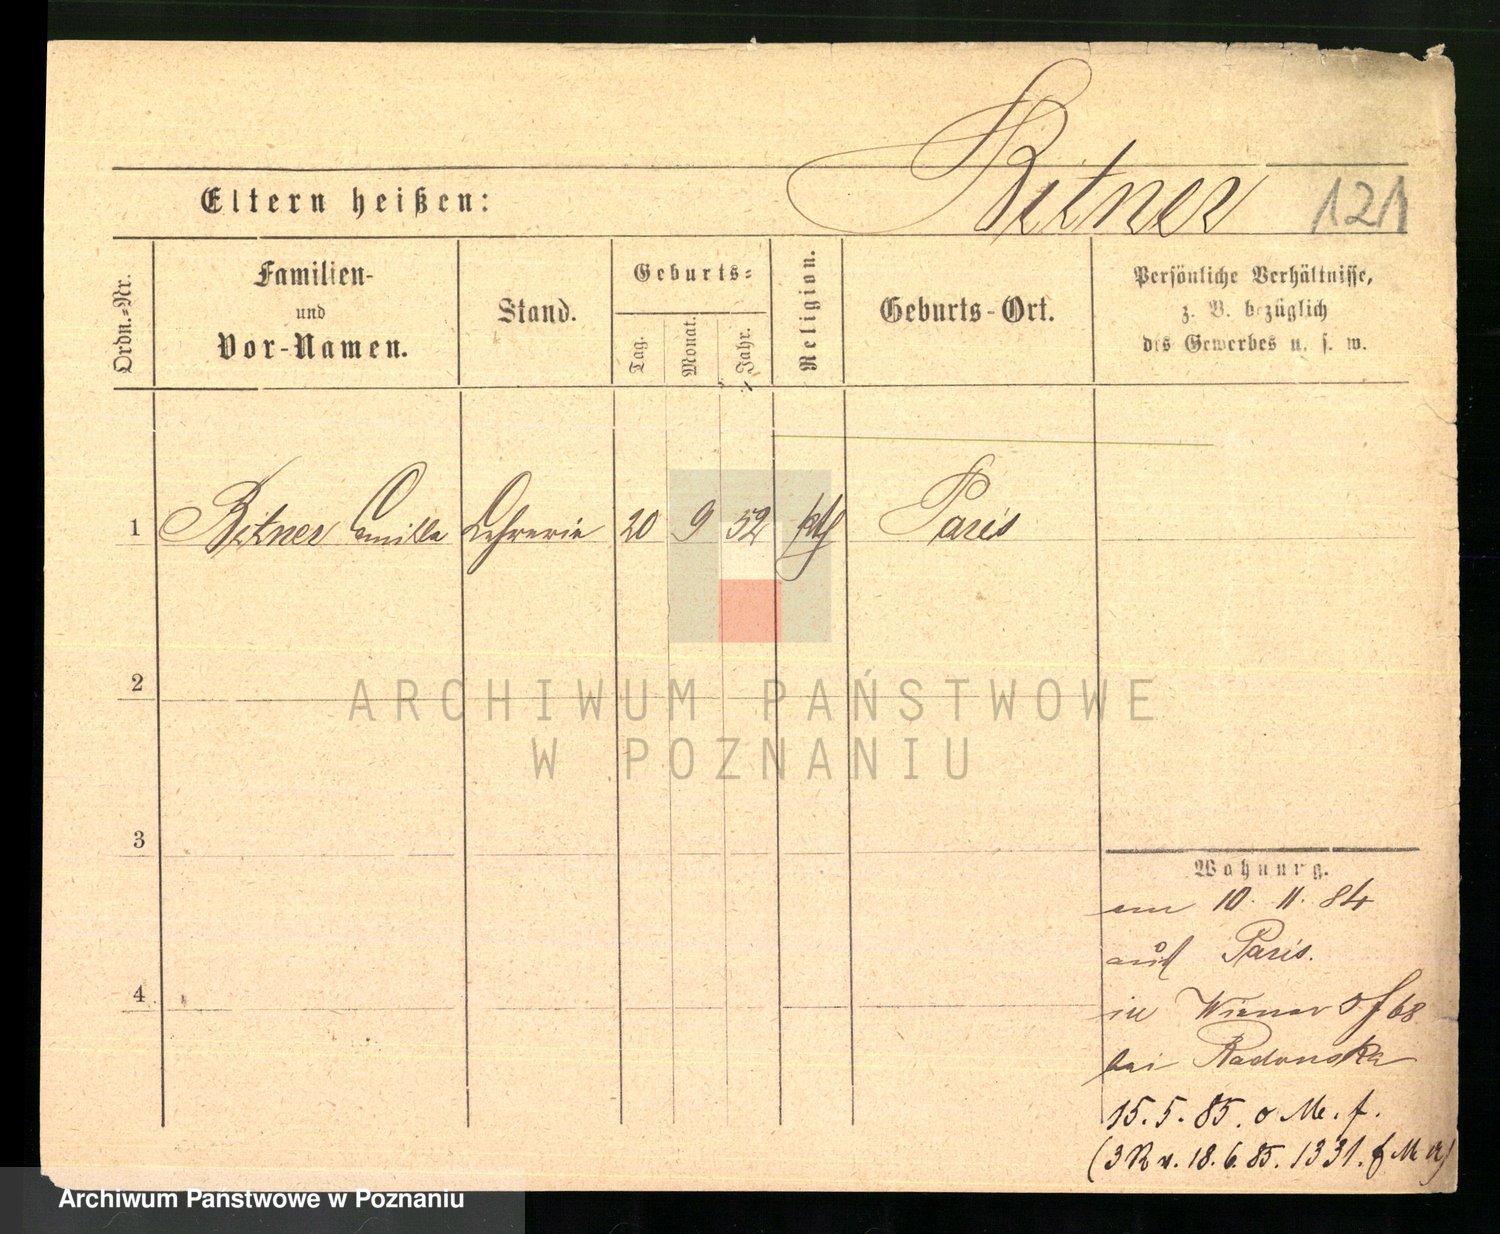 Bitner 121
Eltern heißen:
Ordn.-Nr.
Familien-
und
Vor-Namen.
Stand.
Geburts-
Tag.
Monat.
Jahr.
Religion.
Geburts-Ort.
Persönliche Verhältnisse,
z. B. bezüglich
des Gewerbes u. s. w.
1 Bitner Camilla Lehrerin 20 9 52 kth Paris
2
3
4
Wohnung.
am 10. 11. 84
aus Paris.
in Wiener 68
bei Radonska
15. 5. 85. o Me. f.
(3 R v. 18. 6. 85. 1331. f
ARCHIWUM PAŃSTWOWE
W POZNANIU
Archiwum Państwowe w Poznaniu